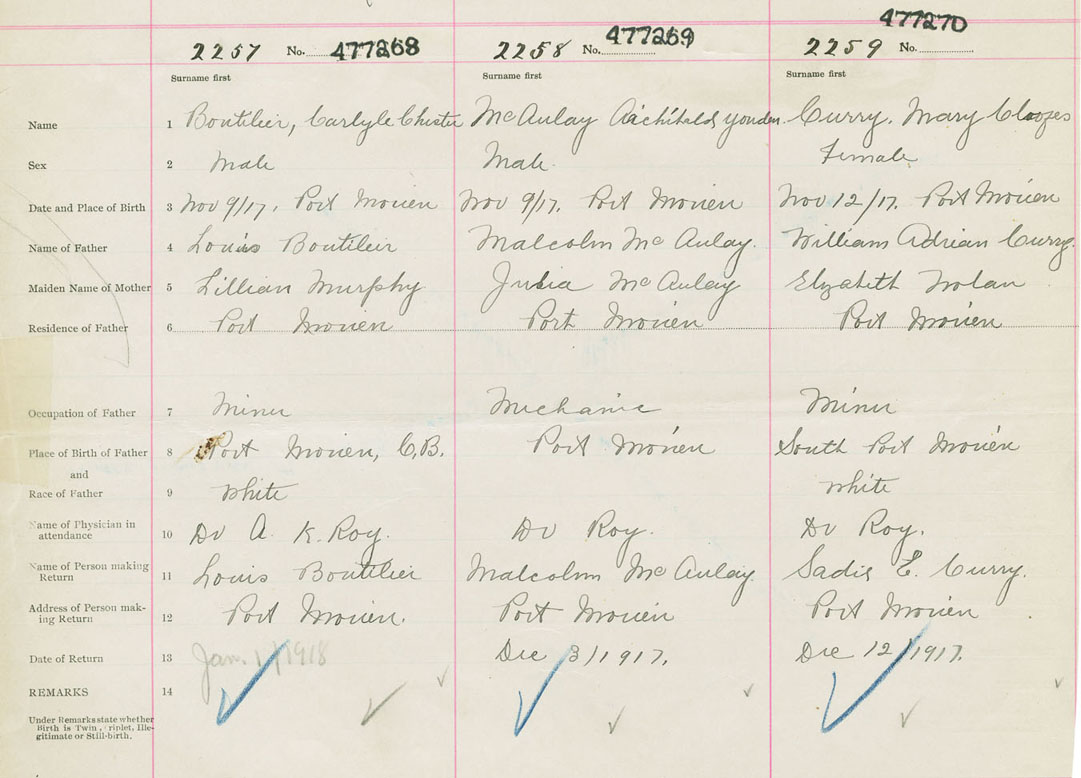 2257 No. 477268 2258 No. 477269 2259 No. 477270
Surname first Surname first Surname first
Name 1 Boutilier, Carlyle Chester McAulay Archibald Yonden Curry, Mary
Sex 2 Male Male. Female
Date and Place of Birth 3 Nov 9/17, Port Morien Nov 9/17. Port Morien Nov 12/17. Port Morien
Name of Father 4 Louis Boutilier Malcolm McAulay. William Adrian Curry.
Maiden Name of Mother 5 Lillian Murphy Julia McAulay Elizabeth Nolan
Residence of Father 6 Port Morien Port Morien Port Morien
Occupation of Father 7 Miner Mechanic Miner
Place of Birth of Father 8 Port Morien, C.B. Port Morien South Port Morien
and
Race of Father 9 White White
Name of Physician in
attendance 10 Dr A. K. Roy. Dr Roy. Dr Roy.
Name of Person making
Return 11 Louis Boutilier Malcolm McAulay Sadie E. Curry.
Address of Person mak-
ing Return 12 Port Morien. Port Morien Port Morien
Date of Return 13 Jan. 1/1918 Dec 3/1917. Dec 12/1917.
REMARKS 14
Under Remarks state whether
Birth is Twin, Triplet, Ille-
gitimate or Still-birth.